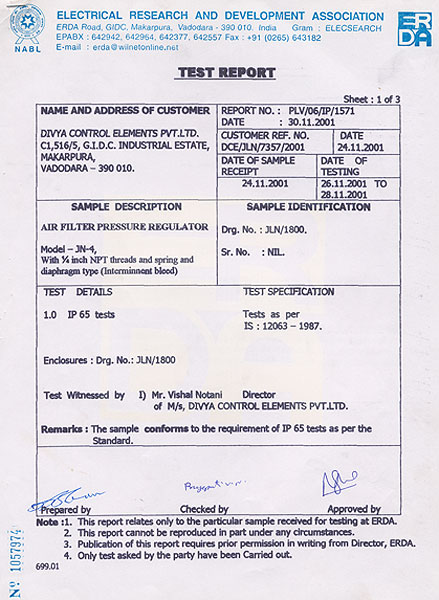 NABL
ELECTRICAL RESEARCH AND DEVELOPMENT ASSOCIATION
ERDA Road, GIDC, Makarpura, Vadodara - 390 010. India Gram : ELECSEARCH
EPABX : 642942, 642964, 642377, 642557 Fax : +91 (0265) 643182
E-mail : erda@wilnetonline.net
ERDA
TEST REPORT
Sheet : 1 of 3
NAME AND ADDRESS OF CUSTOMER
DIVYA CONTROL ELEMENTS PVT.LTD.
C1,516/5, G.I.D.C. INDUSTRIAL ESTATE,
MAKARPURA,
VADODARA – 390 010.
REPORT NO. : PLV/06/IP/1571
DATE : 30.11.2001
CUSTOMER REF. NO. DATE
DCE/JLN/7357/2001 24.11.2001
DATE OF SAMPLE RECEIPT
24.11.2001
DATE OF TESTING
26.11.2001 TO
28.11.2001
SAMPLE DESCRIPTION
AIR FILTER PRESSURE REGULATOR
Model – JN-4,
With ¼ inch NPT threads and spring and
diaphragm type (Interminnent bleed)
SAMPLE IDENTIFICATION
Drg. No. : JLN/1800.
Sr. No. : NIL.
TEST DETAILS TEST SPECIFICATION
1.0 IP 65 tests Tests as per
IS : 12063 – 1987.
Enclosures : Drg. No.: JLN/1800
Test Witnessed by I) Mr. Vishal Notani Director
of M/s, DIVYA CONTROL ELEMENTS PVT.LTD.
Remarks : The sample conforms to the requirement of IP 65 tests as per the
Standard.
Prepared by Checked by Approved by
Note :1. This report relates only to the particular sample received for testing at ERDA.
2. This report cannot be reproduced in part under any circumstances.
3. Publication of this report requires prior permission in writing from Director, ERDA.
4. Only test asked by the party have been Carried out.
699.01
Nº 1057974